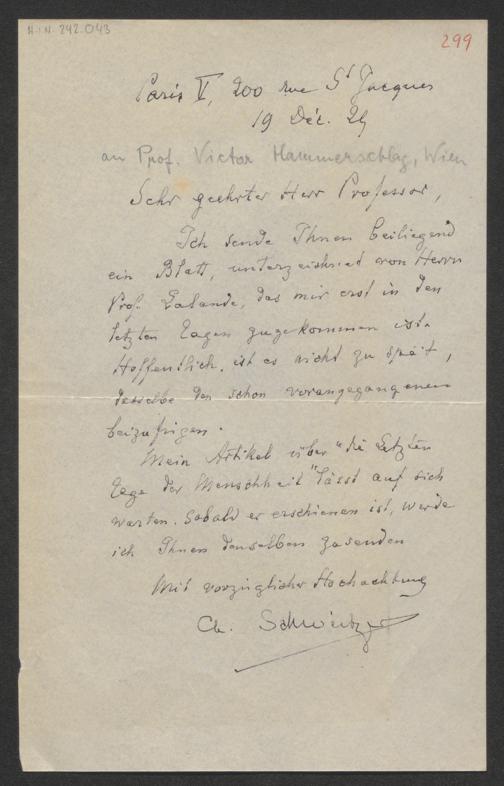 H.I.N. 242.043
299
Paris V, 200 rue St Jacques
19 Déc. 29
an Prof. Victor Hammerschlag, Wien
Sehr geehrter Herr Professor,
Ich sende Ihnen beiliegend
ein Blatt, unterzeichnet von Herrn
Prof. Lalande, das mir erst in den
letzten Tagen zugekommen ist.
Hoffentlich ist es nicht zu spät,
dasselbe den schon vorangegangenen
beizufügen.
Mein Artikel über "die Letzten
Tage der Menschheit" lässt auf sich
warten. Sobald er erschienen ist, werde
ich Ihnen denselben zusenden
Mit vorzüglicher Hochachtung
Ch. Schweitzer